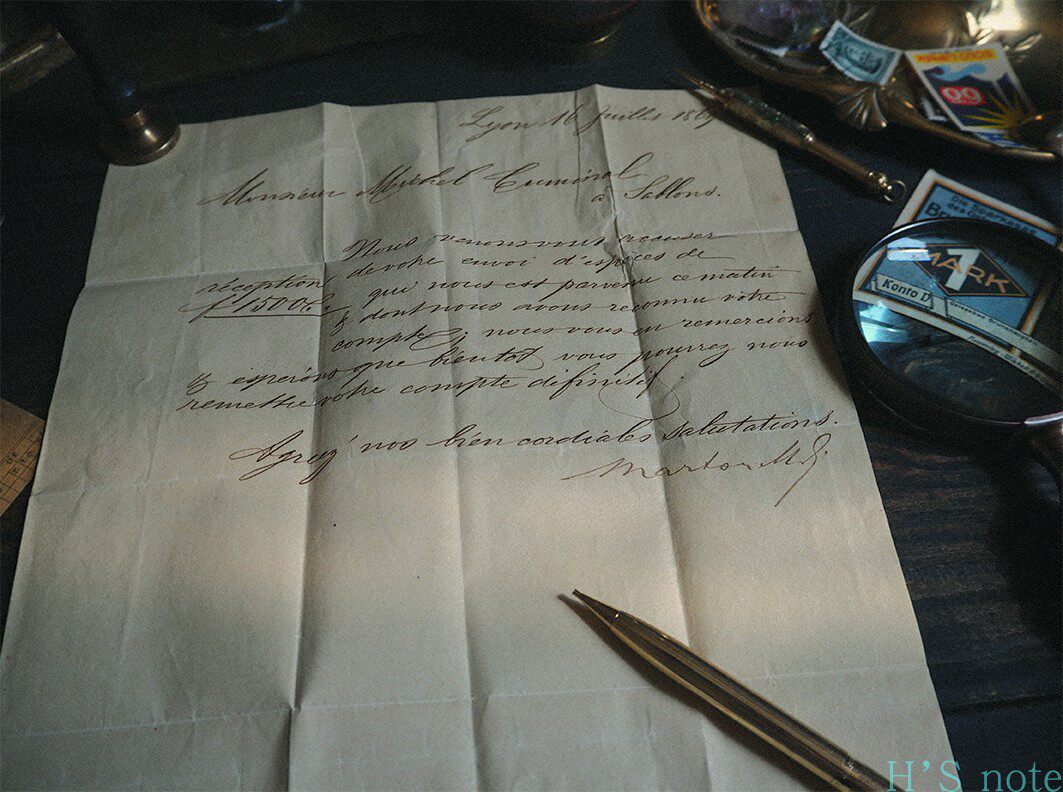 Lyon 16 Juillet 186
Monsieur Michel
à Sablons.
Nous venons vous accuser
réception de votre envoi d'espèces de
f 1500 que nous est parvenu ce matin
& dont nous avons reconnu votre
compte, nous vous en remercions
& espérons que bientot vous pourrez nous
remettre votre compte définitif.
Agréez nos bien cordiales salutations.
99
Die Sparkasse
1
MARK
Konto D
H'S note